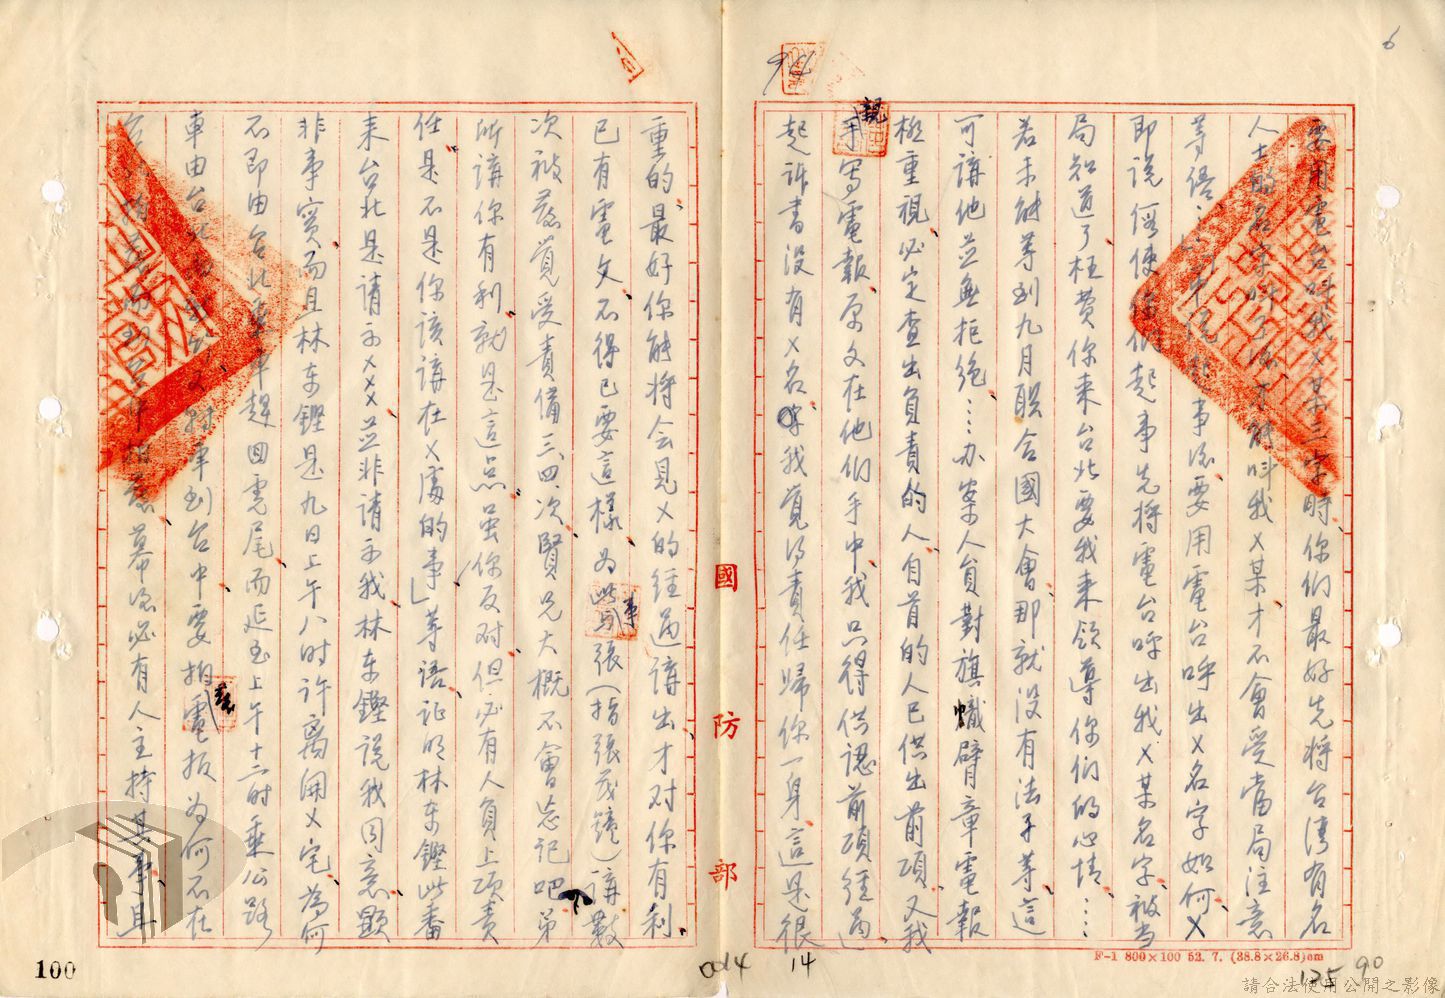 要用電台呼我ㄨ某三字時、你們最好先將台灣有名
人士的名字呼了後才能叫我ㄨ某才不會受當局注意
等語…中信起事後要用電台呼出ㄨ名字如何、ㄨ
即說假使你們起事先將電台呼出我ㄨ某名字、被当
局知道了枉費你來台北要我來領導你們的心情、…
若未能等到九月聯合國大會那就没有法子等、這
可講他並無拒絕、…办案人員對旗幟臂章電報
極重視、必定查出負責的人、自首的人已供出前項、又我
親手寫電報原文在他們手中我只得供認前項經過、
起訴書没有ㄨ名字我覺得責任歸你一身這是很
重的、最好你能將会見ㄨ的經過講出才对你有利、
已有電文不得已要這樣、為此事與張(指張茂鐘)講數
次被發覺受責備三、四、次、賢兄大概不會忘記吧、弟
所講你有利、就是這点、虽你反对、但必有人負上項責
任是不是你該講在ㄨ處的事」等語、証明林东鏗此番
来台北是請示ㄨㄨㄨ並非請示我林东鏗説我同意顯
非事實、而且林东鏗是九日上午八时许离開ㄨ宅、為何
不即由台北乘車趕回虎尾而延至上午十二时乘公路
車由台北 到台 又轉車到台中要拍電报、為何不在
幕後必有人主持其事、且
國防部
F-1 800×100 52. 7. (38.8×26.8)cm
100
014
14
125
90
6
請合法使用公開之影像